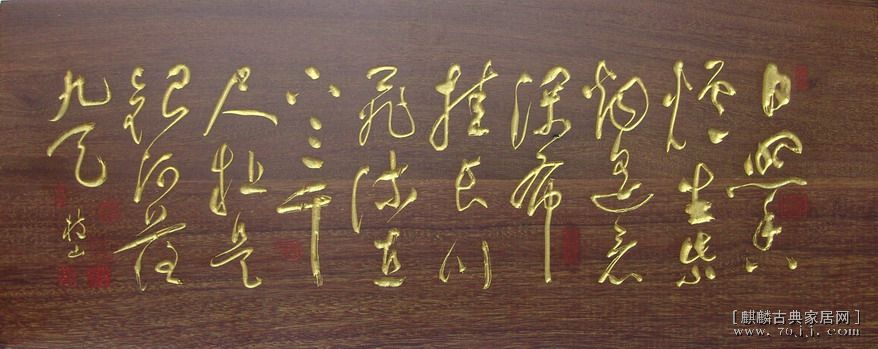 日照香
炉生紫
烟遥看
瀑布
挂長川
飛流直
下三千
尺疑是
銀河落
九天
枝山
[麒麟古典家居网]
www.76jj.com